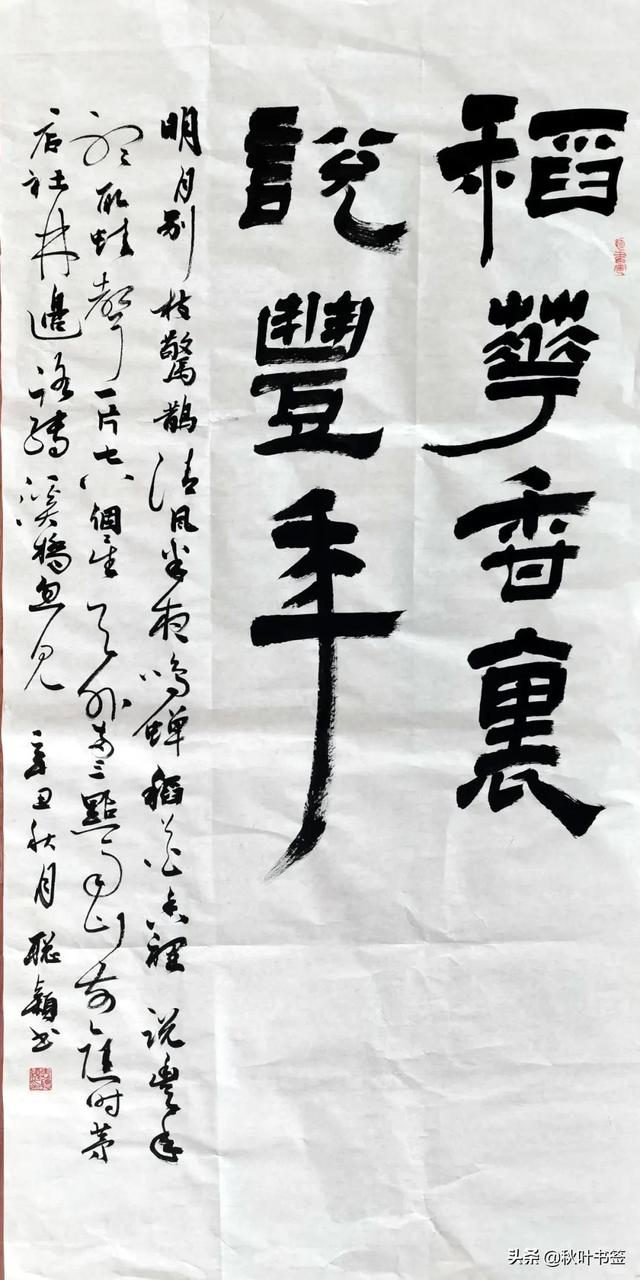 稻華香裏
說豐年
明月别枝驚鵲清風半夜鳴蟬稻花香裡说豐年
聽取蛙聲一片七八個星天外两三點雨山前舊时茅
店社林邊路轉溪橋忽見 辛丑秋月 聪穎书
头条 @秋叶书签